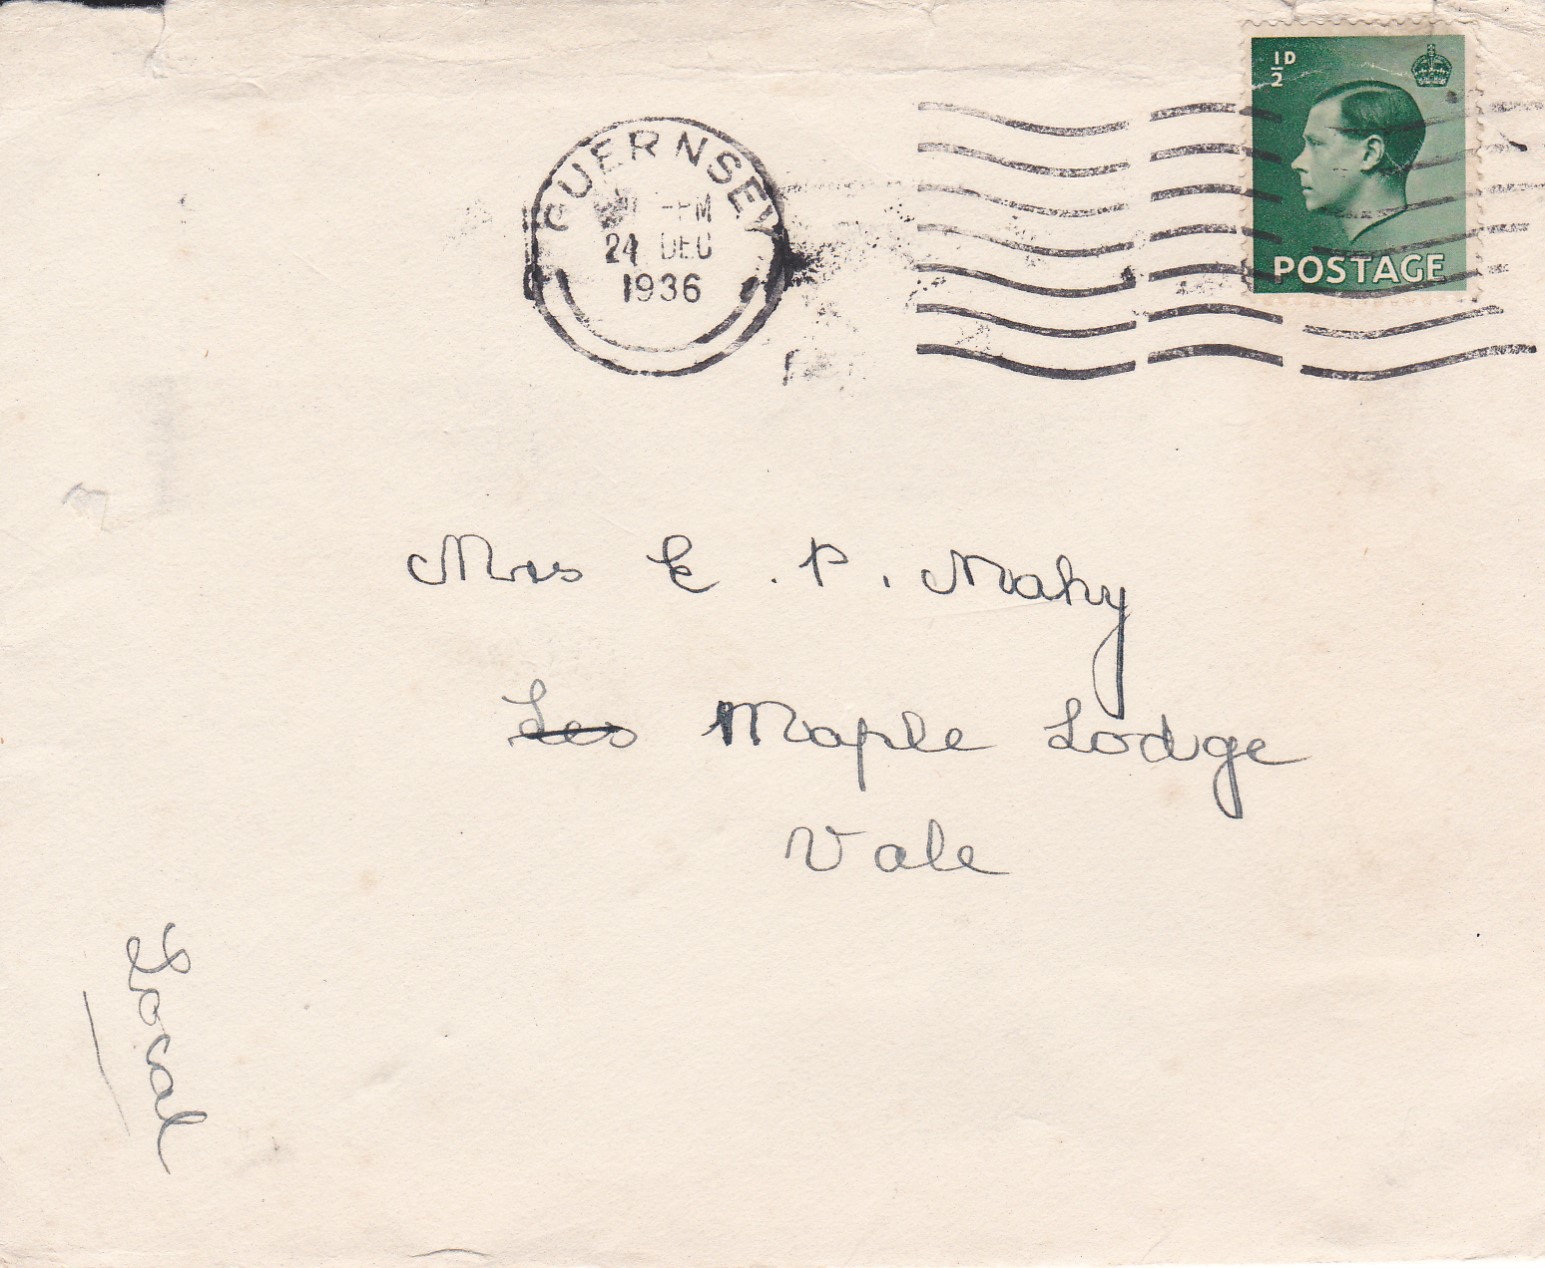 ½D
POSTAGE
GUERNSEY
PM
24 DEC
1936
Mrs E. P. Mahy
Les Maple Lodge
Vale
Local